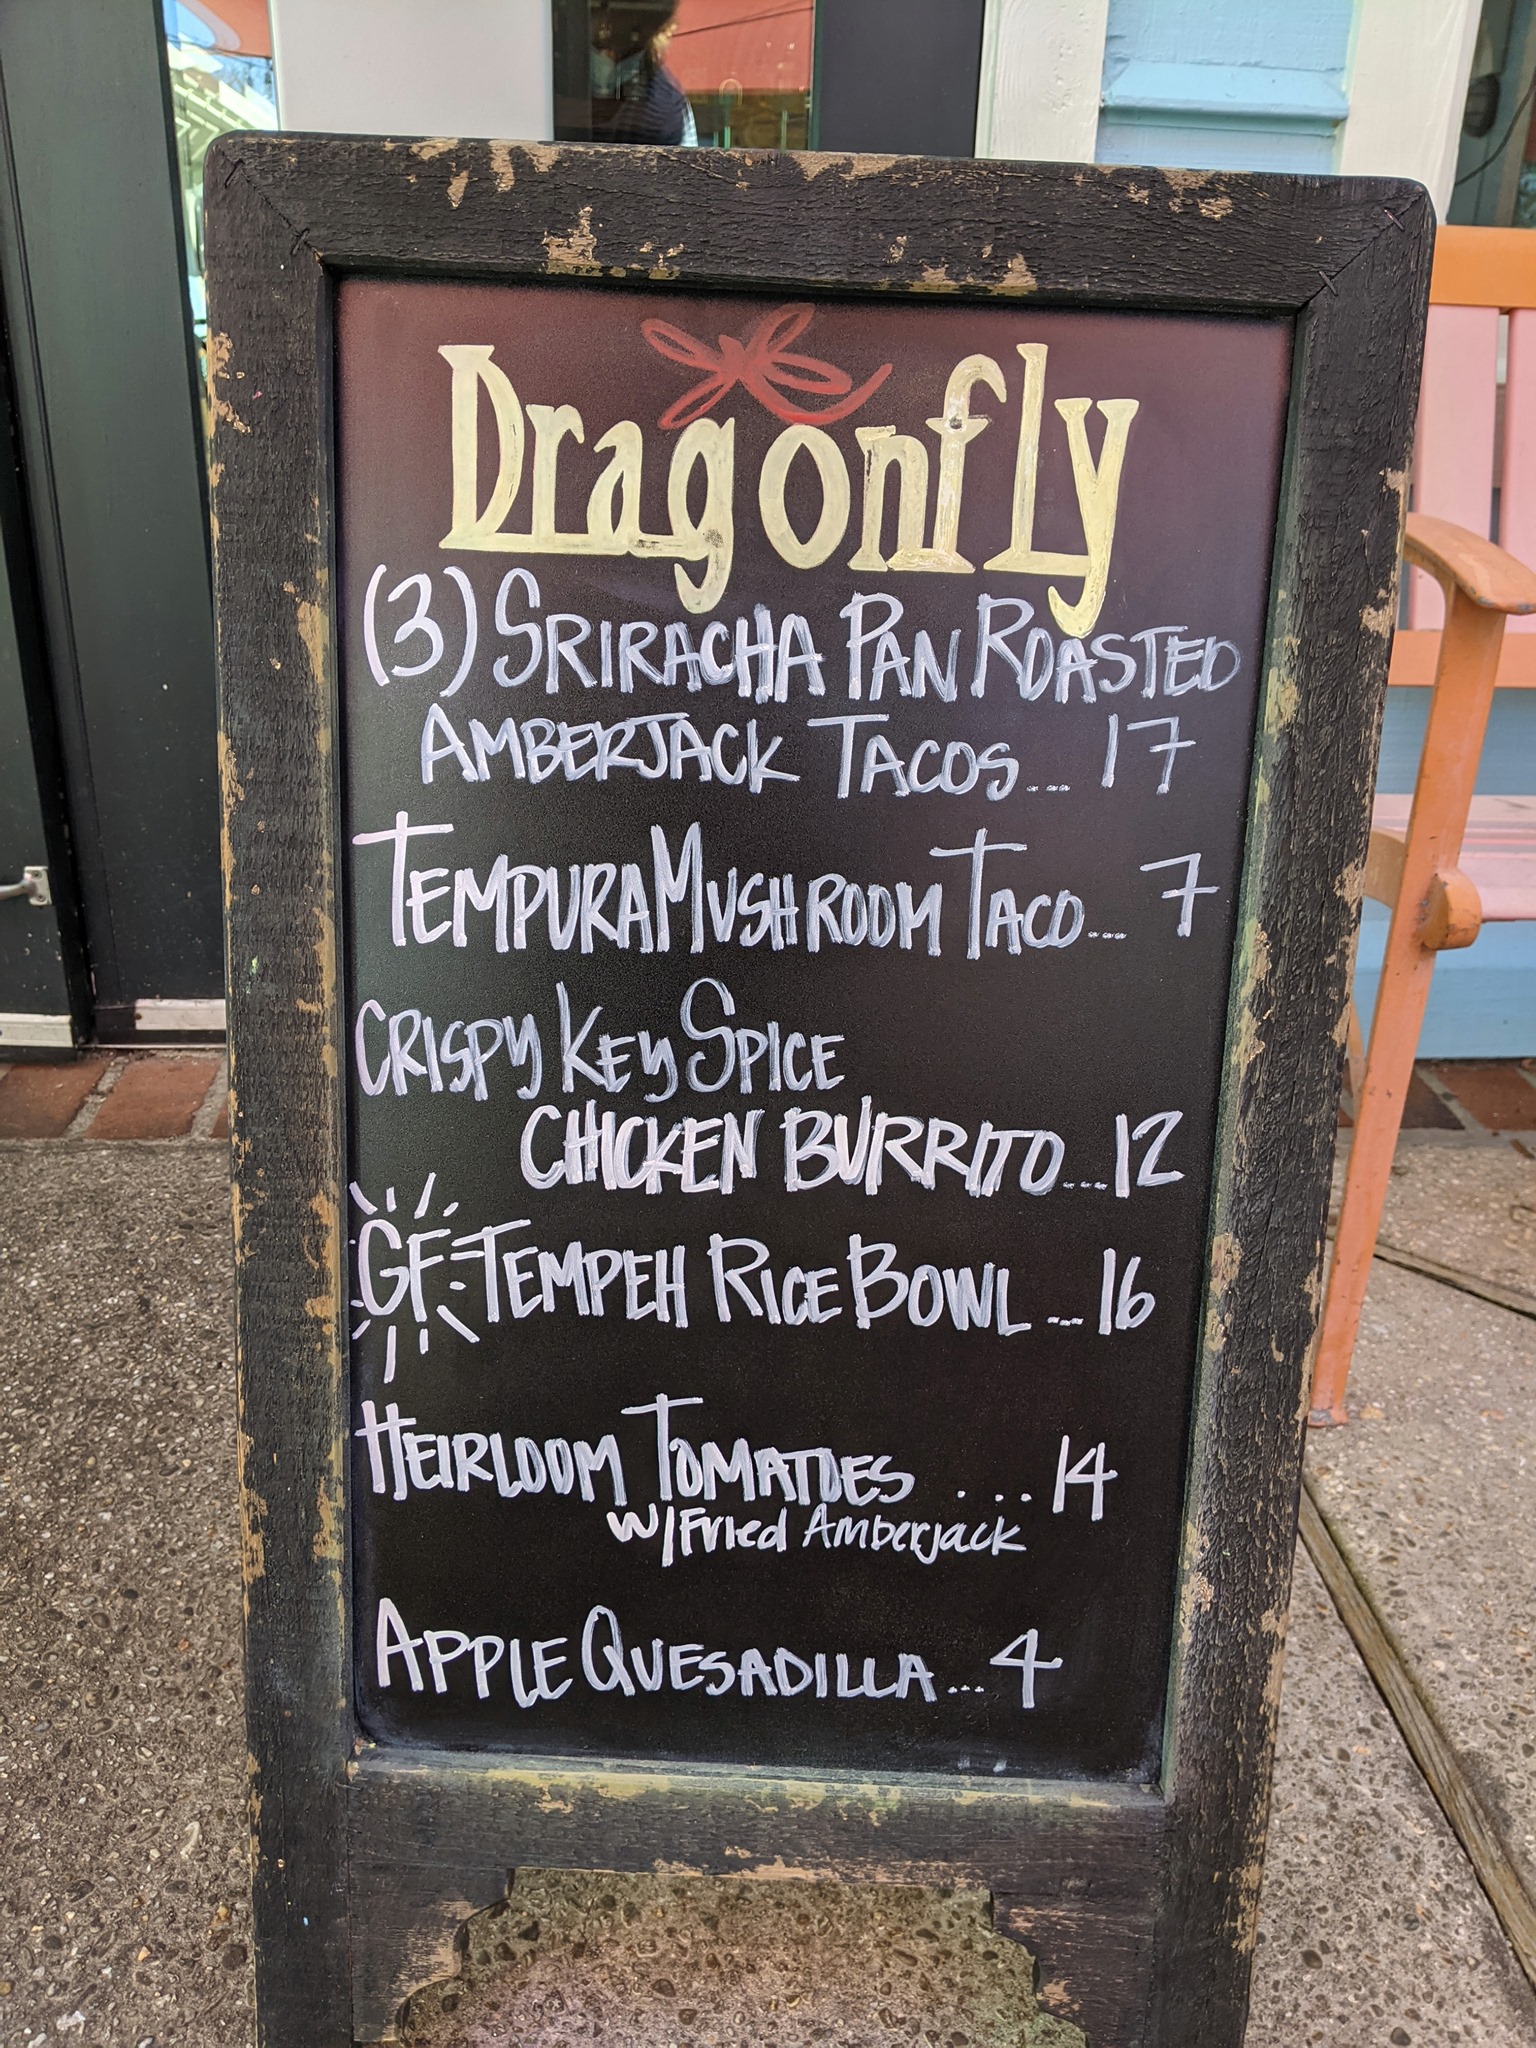 Dragonfly
(3) SRIRACHA PAN ROASTED
AMBERJACK TACOS... 17
TEMPURA MUSHROOM TACO... 7
CRISPY KEY SPICE
CHICKEN BURRITO...12
GF TEMPEH RICE BOWL ... 16
HEIRLOOM TOMATOES .... 14
W/Fried Amberjack
APPLE QUESADILLA... 4